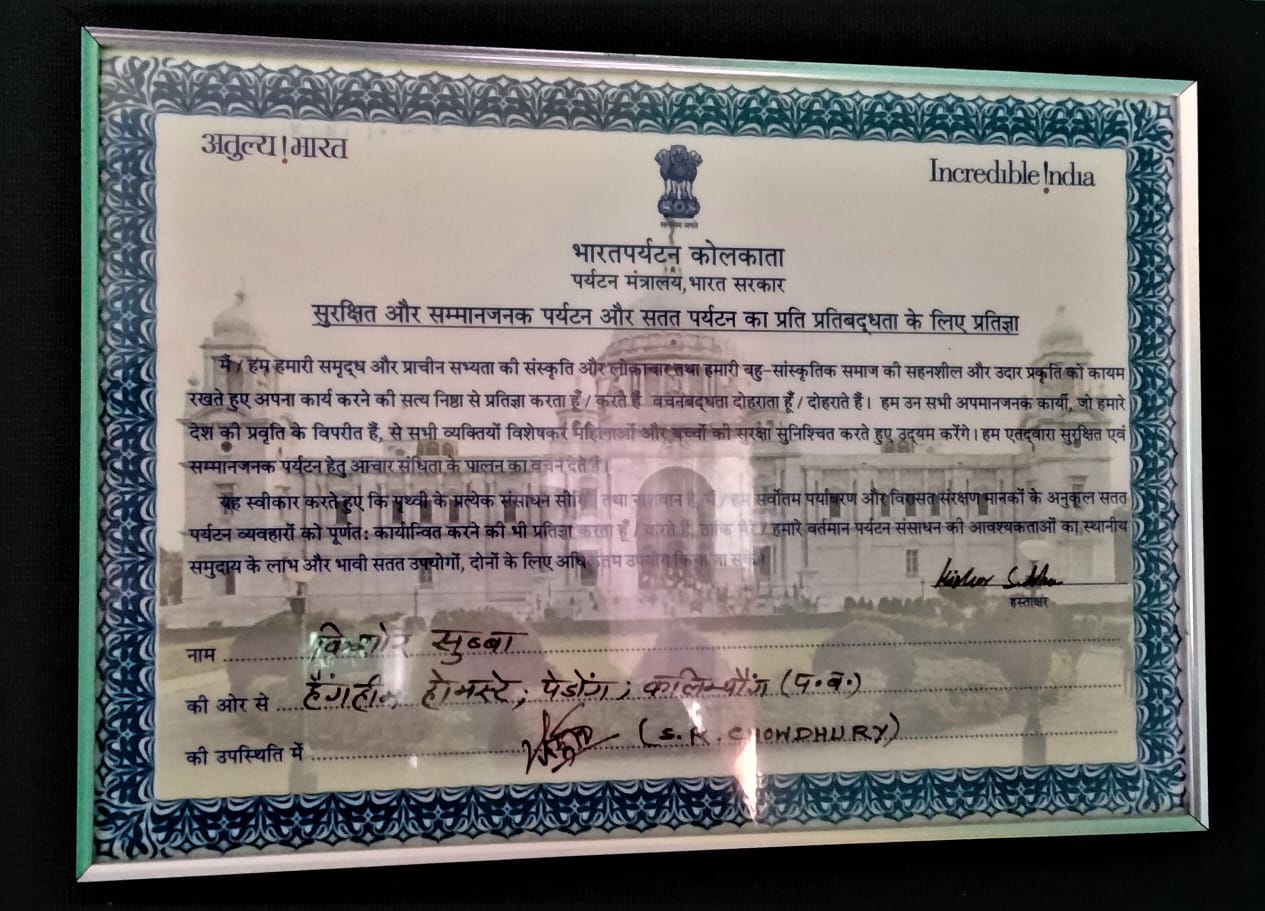 अतुल्य!भारत
Incredible!ndia
सत्यमेव जयते
भारतपर्यटन कोलकाता
पर्यटन मंत्रालय, भारत सरकार
सुरक्षित और सम्मानजनक पर्यटन और सतत पर्यटन का प्रति प्रतिबद्धता के लिए प्रतिज्ञा
मैं / हम हमारी समृद्ध और प्राचीन सभ्यता की संस्कृति और लोकाचार तथा हमारी बहु-सांस्कृतिक समाज की सहनशील और उदार प्रकृति को कायम
रखते हुए अपना कार्य करने की सत्य निष्ठा से प्रतिज्ञा करता हूँ / करते हैं वचनबद्धता दोहराता हूँ / दोहराते हैं। हम उन सभी अपमानजनक कार्यो, जो हमारे
देश की प्रवृति के विपरीत हैं, से सभी व्यक्तियों विशेषकर महिलाओं और बच्चों की सुरक्षा सुनिश्चित करते हुए उद्यम करेंगे। हम एतद्वारा सुरक्षित एवं
सम्मानजनक पर्यटन हेतु आचार संधिता के पालन का वचन देते हैं।
यह स्वीकार करते हुए कि पृथ्वी के प्रत्येक संसाधन तथा नाशवान हैं, मैं / हम सर्वोतम पर्यावरण और विरासत संरक्षण मानकों के अनुकूल सतत
पर्यटन व्यवहारों को पूर्णत: कार्यान्वित करने की भी प्रतिज्ञा करता हूँ / करते हैं, ताकि मेरे / हमारे वर्तमान पर्यटन संसाधन की आवश्यकताओं का स्थानीय
समुदाय के लाभ और भावी सतत उपयोगों, दोनों के लिए उपयोग किया जा सके।
Kishor Subba
हस्ताक्षर
नाम किशोर सुब्बा
की ओर से होमस्टे; पेडोंग; कलिम्पोंग (प.बं.)
की उपस्थिति में (S.K. CHOWDHURY)